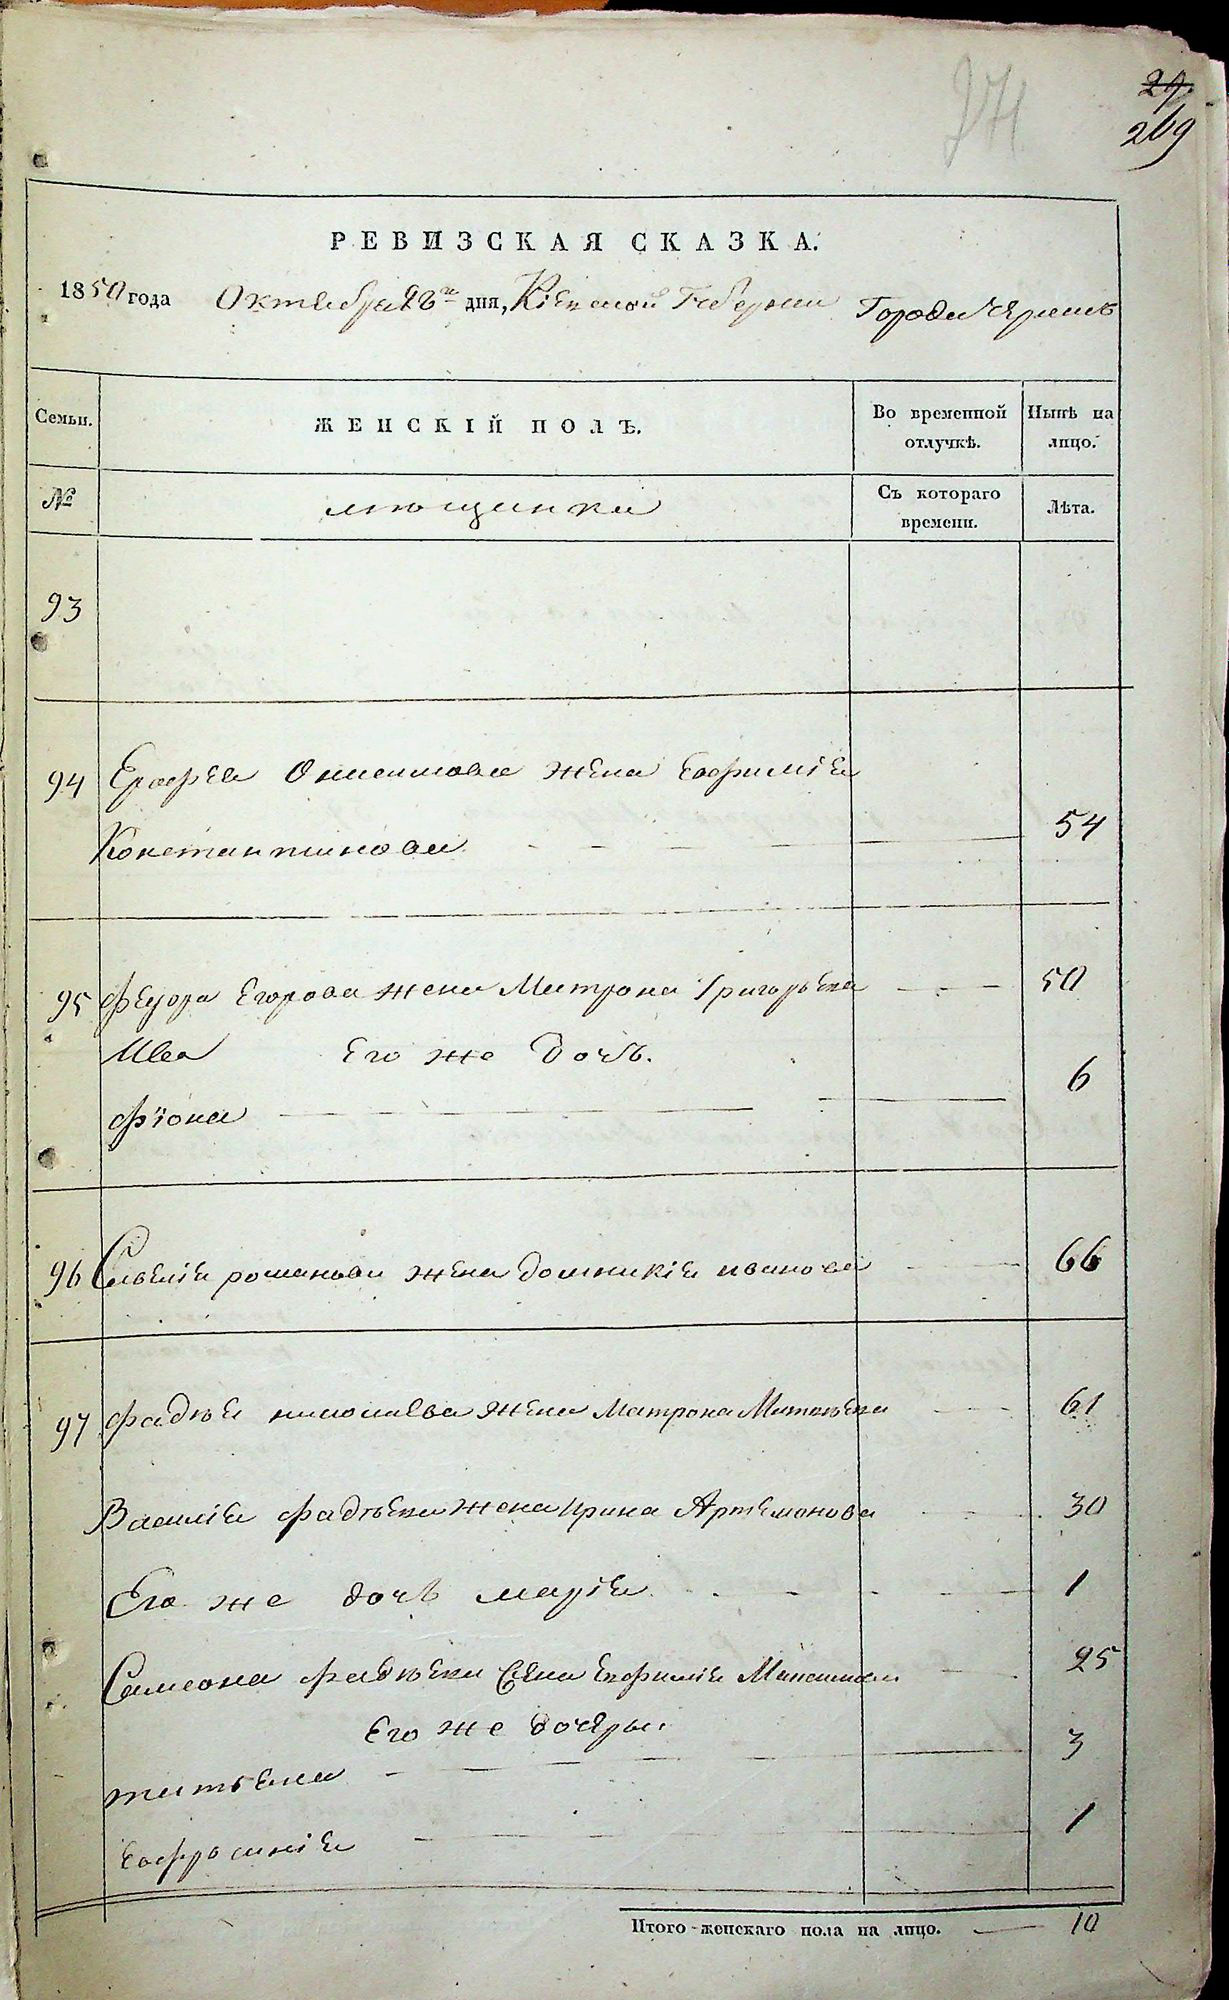 29.
269
РЕВИЗСКАЯ СКАЗКА.
1850 года Октября 26го дня, Кіевской Губерніи Города
Семьи.
ЖЕНСКІЙ ПОЛЪ.
Во временной отлучкѣ.
Нынѣ на лицо.
№
мещанки
Съ котораго времени.
Лѣта.
93
94 Ерофея Онисимова жена Евфимія
Константинова 54
95 Федора Егорова жена Матрона Григорьева 50
Его же дочь.
Фіона 6
96 Савелія романова жена домникія иванова 66
97 Фадѣя николаева жена Матрона Матвѣева 61
Василія Фадѣева жена ирина Артемонова 30
Его же дочь марія 1
Самсона фадѣева жена Евфимія 25
Его же дочери
татьяна 3
евфросинія 1
Итого женскаго пола на лицо. 10